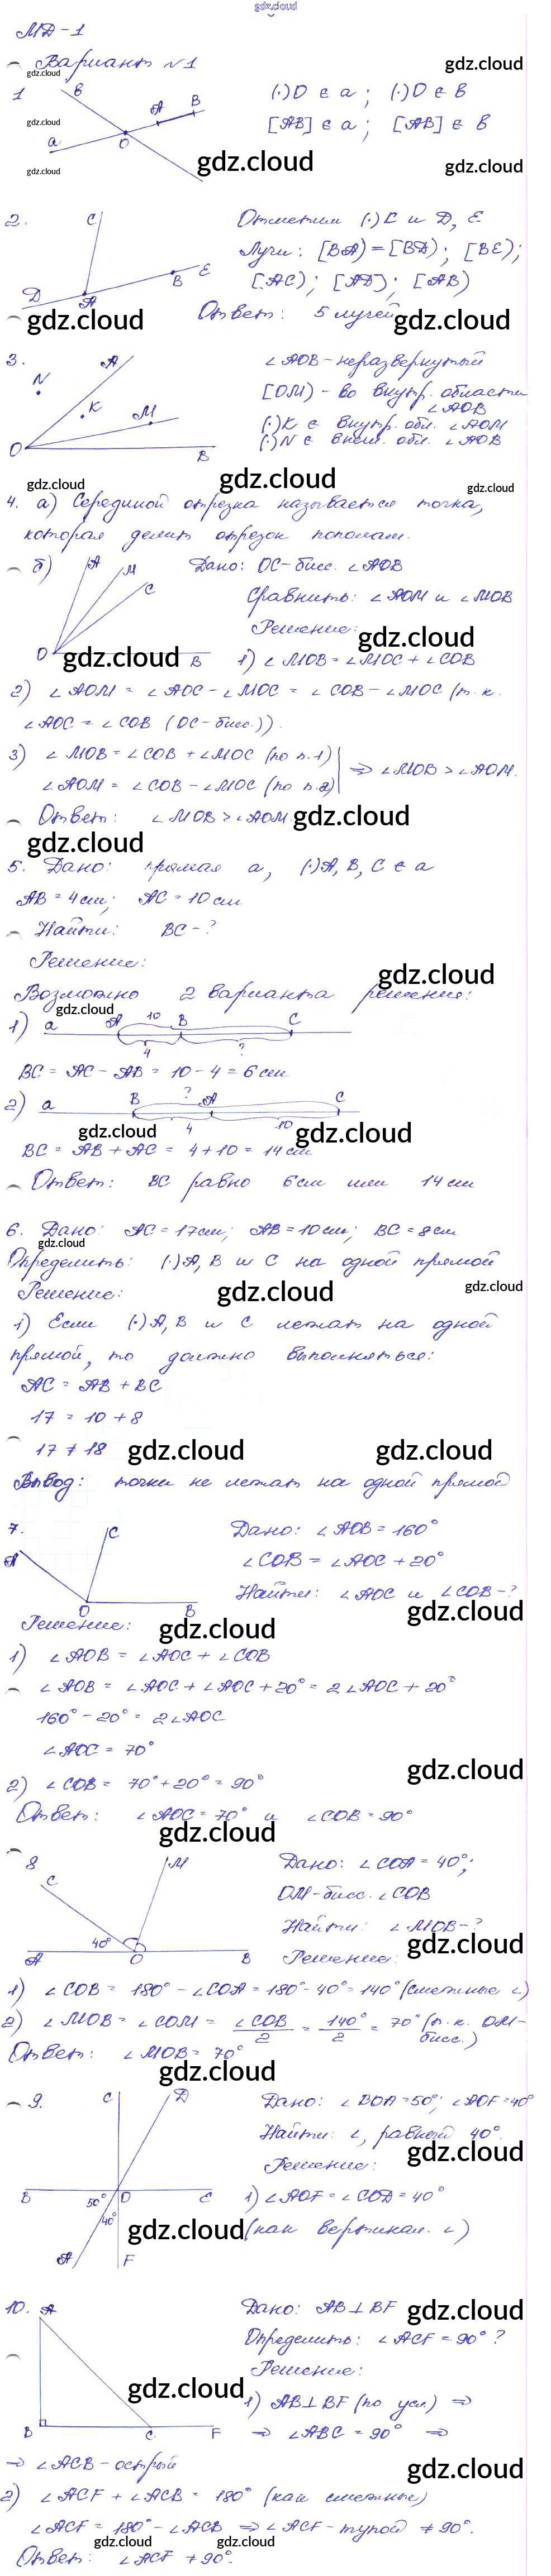 gdz.cloud
МД-1
Вариант №1
gdz.cloud
gdz.cloud
1
в
A
B
a
O
gdz.cloud
(·)D ∈ a; (·)D ∈ в
[AB] ∈ a; [AB] ∈ в
gdz.cloud
gdz.cloud
gdz.cloud
2.
C
D
A
B
E
Отметим (·) C и D, E
Лучи: [BA) = [BD); [BE);
[AC); [AD); [AB)
Ответ: 5 лучей
gdz.cloud
gdz.cloud
3.
N
A
K
M
O
B
∠AOB - неразвернутый
[OM) - во внутр. области
∠AOB
(·)K ∈ внутр. обл. ∠AOM
(·)N ∈ внеш. обл. ∠AOB
gdz.cloud
gdz.cloud
gdz.cloud
4. а) Серединой отрезка называется точка,
которая делит отрезок пополам.
б)
A
M
C
O
B
Дано: OC - бисс. ∠AOB
Сравнить: ∠AOM и ∠MOB
Решение:
gdz.cloud
gdz.cloud
1) ∠MOB = ∠MOC + ∠COB
2) ∠AOM = ∠AOC - ∠MOC = ∠COB - ∠MOC (т.к.
∠AOC = ∠COB (OC - бисс.)).
3) ∠MOB = ∠COB + ∠MOC (по п.1)
∠AOM = ∠COB - ∠MOC (по п.2)
⇒ ∠MOB > ∠AOM.
Ответ: ∠MOB > ∠AOM.
gdz.cloud
gdz.cloud
5. Дано: прямая a, (·)A, B, C ∈ a
AB = 4 см; AC = 10 см
Найти: BC - ?
Решение:
gdz.cloud
Возможно 2 варианта решения:
gdz.cloud
1) a A 10 B C
4 ?
BC = AC - AB = 10 - 4 = 6 см
2) a B ? A C
4 10
gdz.cloud
gdz.cloud
BC = AB + AC = 4 + 10 = 14 см
Ответ: BC равно 6 см или 14 см
6. Дано: AC = 17 см; AB = 10 см; BC = 8 см
gdz.cloud
Определить: (·)A, B и C на одной прямой
Решение:
gdz.cloud
gdz.cloud
1) Если (·)A, B и C лежат на одной
прямой, то должно выполняться:
AC = AB + BC
17 = 10 + 8
17 ≠ 18
gdz.cloud
gdz.cloud
Вывод: точки не лежат на одной прямой
7.
A
C
O
B
Дано: ∠AOB = 160°
∠COB = ∠AOC + 20°
Найти: ∠AOC и ∠COB - ?
gdz.cloud
Решение:
gdz.cloud
1) ∠AOB = ∠AOC + ∠COB
∠AOB = ∠AOC + ∠AOC + 20° = 2∠AOC + 20°
160° - 20° = 2∠AOC
∠AOC = 70°
gdz.cloud
2) ∠COB = 70° + 20° = 90°
Ответ: ∠AOC = 70° и ∠COB = 90°
gdz.cloud
8.
C
M
40°
A
O
B
Дано: ∠COA = 40°;
OM - бисс. ∠COB
Найти: ∠MOB - ?
gdz.cloud
Решение:
1) ∠COB = 180° - ∠COA = 180° - 40° = 140° (смежные ∠)
2) ∠MOB = ∠COM = ∠COB/2 = 140°/2 = 70° (т.к. OM - бисс.)
Ответ: ∠MOB = 70°
gdz.cloud
9.
C
D
B
50°
O
C
40°
A
F
Дано: ∠BOA = 50°; ∠AOF = 40°
Найти: ∠, равный 40°.
gdz.cloud
Решение:
1) ∠AOF = ∠COD = 40°
gdz.cloud
(как вертикал. ∠)
10.
A
B
C
F
Дано: AB ⊥ BF
gdz.cloud
Определить: ∠ACF = 90° ?
Решение:
gdz.cloud
1) AB ⊥ BF (по усл.) ⇒
⇒ ∠ABC = 90° ⇒
⇒ ∠ACB - острый
gdz.cloud
2) ∠ACF + ∠ACB = 180° (как смежные)
∠ACF = 180° - ∠ACB ⇒ ∠ACF - тупой ≠ 90°.
gdz.cloud
gdz.cloud
Ответ: ∠ACF ≠ 90°.